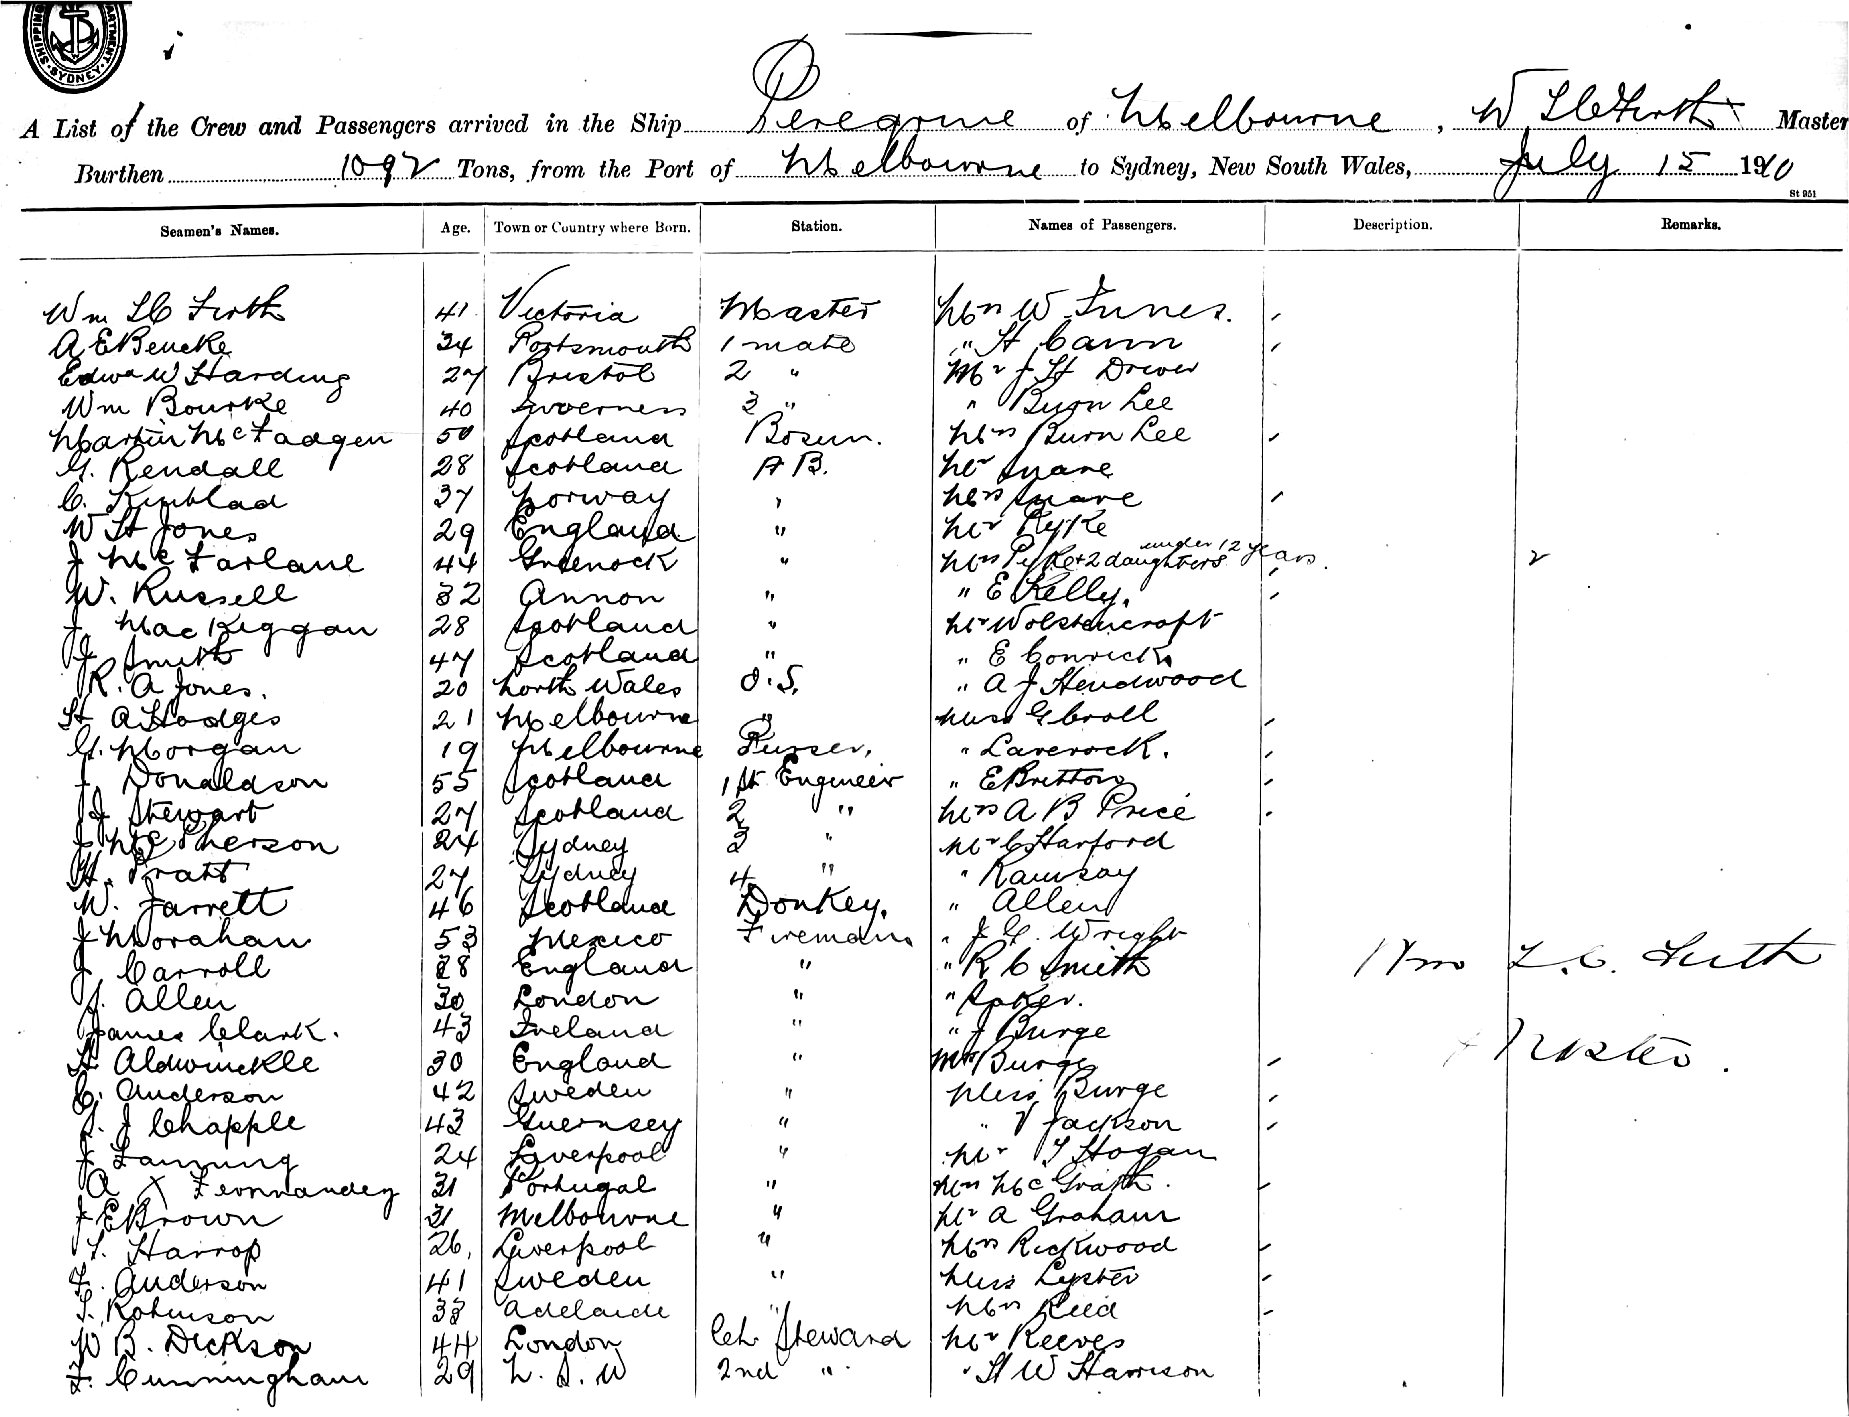 SHIPPING DEPARTMENT SYDNEY
A List of the Crew and Passengers arrived in the Ship Peregrine of Melbourne, W L C Firth Master
Burthen 1092 Tons, from the Port of Melbourne to Sydney, New South Wales, July 15 1910
St 951
Seamen's Names. Age. Town or Country where Born. Station. Names of Passengers. Description. Remarks.
Wm L C Firth 41 Victoria Master Mrs W Innes.
A E Beucke 34 Portsmouth 1 mate " H Cann
Edwd W Harding 27 Bristol 2 " Mr J H Drew
Wm Bourke 40 Inverness 3 " " Burn Lee
Martin McFadgen 50 Scotland Bosun. Mrs Burn Lee
G. Kendall 28 Scotland A B. Mr Snare
C. 37 Norway " Mrs Snare
W H Jones 29 England " Mr Pyke
J McFarlane 44 Greenock " Mrs Pyke + 2 daughters under 12 years. 2
W. Russell 32 Annon " " E Kelly.
J. MacKiggan 28 Scotland " Mr Wolstencroft
J. Smith 47 Scotland " " E Conrick
R. A Jones. 20 North Wales O.S. " A J Hendwood
H A Hodges 21 Melbourne " Miss G Croll
G. Morgan 19 Melbourne Purser. " Laverock.
J Donaldson 55 Scotland 1st Engineer " E Britton
J Stewart 27 Scotland 2 " Mrs A B Price
J McPherson 24 Sydney 3 " Mr C Harford
H. Pratt 27 Sydney 4 " " Ramsay
W. Jarrett 46 Scotland Donkey. " Allen
J Morahan 53 Mexico Fireman. " J G. Wright
J Carroll 28 England " " R C Smith Wm L. C. Firth
J. Allen 30 London "
James Clark. 43 Ireland " " J Burge
H Aldwinckle 30 England " Mrs Burge Master.
C. Anderson 42 Sweden " Miss Burge
J. J Chapple 43 Guernsey " " V Jackson
J Fanning 24 Liverpool " Mr T Hogan
A X Fernnandez 31 Portugal " Mrs McGrath.
J E Brown 31 Melbourne " Mr A Graham
T. Harrop 26 Liverpool " Mrs Rickwood
F. Anderson 41 Sweden " Miss Lyster
T. Robinson 33 Adelaide " Mrs Reid
W B. Dickson 44 London Ch Steward Mr Reeves
F. Cunningham 29 N. S. W 2nd " " H W Harrison